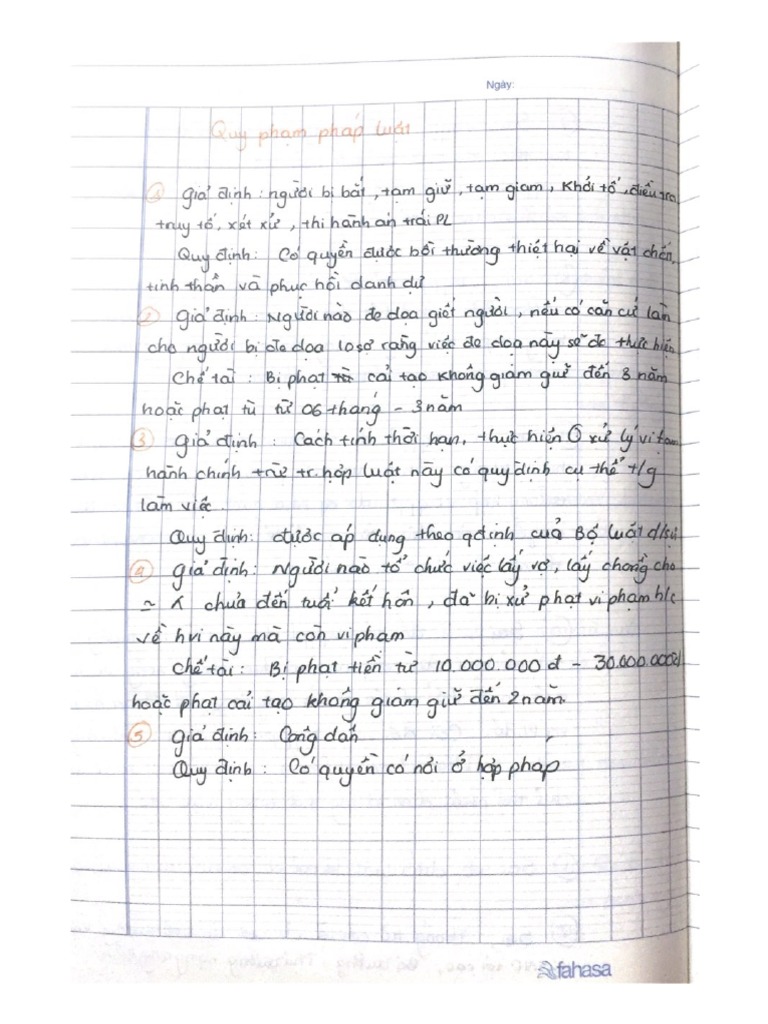 Ngày:
Quy phạm pháp luật
① Giả định: người bị bắt, tạm giữ, tạm giam, khởi tố, điều tra
truy tố, xét xử, thi hành án trái PL
Quy định: Có quyền được bồi thường thiệt hại về vật chất,
tinh thần và phục hồi danh dự
② Giả định: Người nào đe dọa giết người, nếu có căn cứ làm
cho người bị đe dọa lo sợ rằng việc đe dọa này sẽ đc thực hiện
Chế tài: Bị phạt cải tạo không giam giữ đến 3 năm
hoặc phạt tù từ 06 tháng - 3 năm
③ Giả định: Cách tính thời hạn, thực hiện xử lý vi
hành chính trừ tr.hợp luật này có quy định cụ thể t/g
làm việc
Quy định: được áp dụng theo qđịnh của Bộ luật d/sự
④ Giả định: Người nào tổ chức việc lấy vợ, lấy chồng cho
chưa đến tuổi kết hôn, đã bị xử phạt vi phạm h/c
về hvi này mà còn vi phạm
Chế tài: Bị phạt tiền từ 10.000.000đ - 30.000.000đ
hoặc phạt cải tạo không giam giữ đến 2 năm
⑤ Giả định: Công dân
Quy định: Có quyền có nơi ở hợp pháp
fahasa